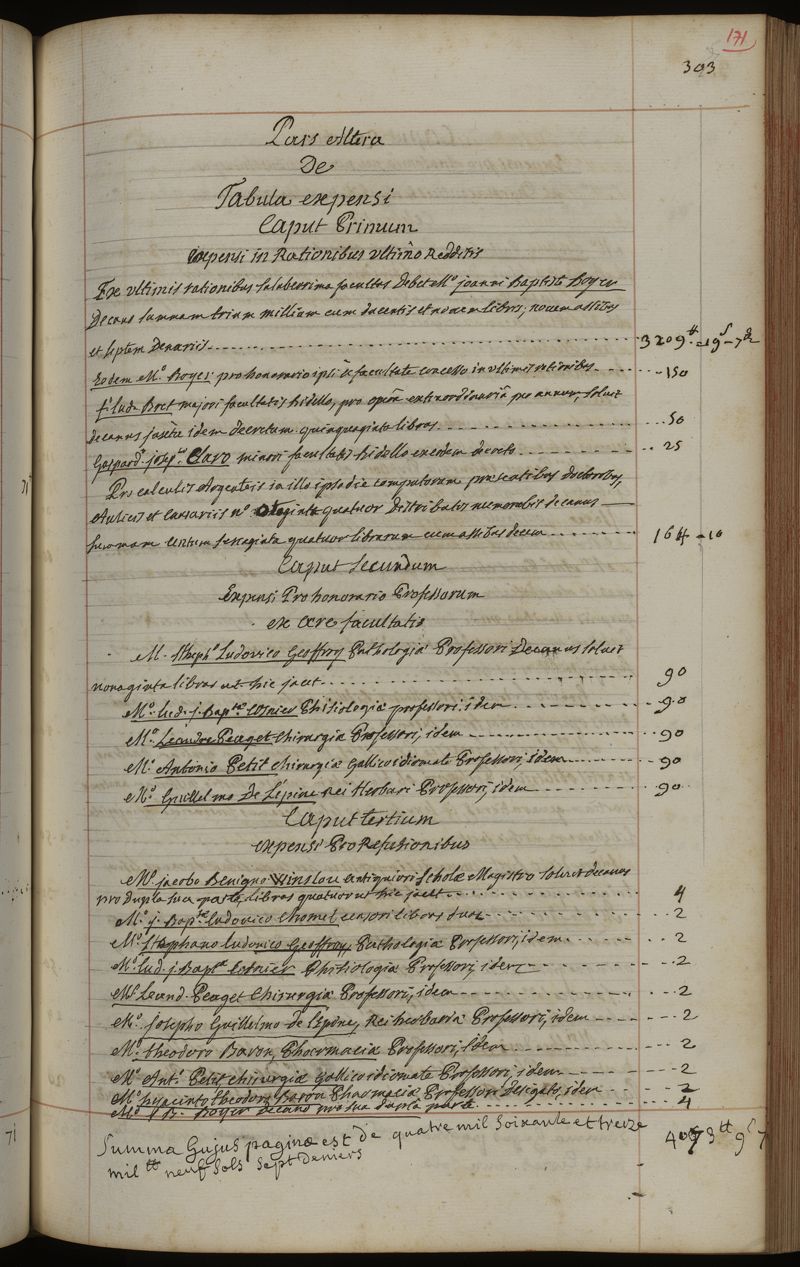 171
303
Pars Altera
De
Tabula expensi
Caput Primum
expensi in Rationibus ultimo Redditis
Ex ultimis rationibus saluberrima facultas Debet Mo. joanni Baptistæ Boyer
Decano summam trium millium cum ducentis et novem libris, novem assibus
et septem Denariis 3209tt 19s 7d
Eodem Mo. Boyer pro honorario ipsi à facultate concesso in ultimis rationibus 150
f. lud. Bret majori facultatis bidello, pro operâ extraordinariâ per annum, solvit
decanus juxta idem decretum quinquaginta libras 50
Gaspard. josep. Claro minori facultatis bidello ex eodem decreto 25
Pro calculis Argenteis in illo ipso die computorum præsentibus doctoribus,
Aulicis et Castris no. quatuor distributis numerabit decanus
summam centum sexaginta quatuor librarum cum assibus decem 164 10
Caput Secundum
Expensi Pro honorario Professorum
ex ære facultatis
M. Steph. Ludovico Geoffroy Pathologiæ Professori Decanus solvit
nonaginta libras ut hic jacet 90
Mo. Lud. j. Bapte. Cosnier Phisiologiæ professori, idem 90
Mo. Leandro Peaget Chirurgiæ Professori, idem 90
Mo. Antonio Petit chirurgiæ Gallico idiomate Professori, idem 90
Mo. Guillelmo De Lépine Rei Herbariæ Professori, idem 90
Caput tertium
expensi Pro Refutionibus
Mo. jacobo Benigno Winslou antiquiori Scholæ Magistro solvit decanus
pro dupla sua parte, libras quatuor ut hic jacet 4
Mo. j. Bapte. Ludovico Chomel censori libras duas 2
Mo. Stephano Ludovico Geoffroy, Pathologiæ Professori, idem 2
Mo. Lud. j. Bapte. Cosnier Phisiologiæ Professori, idem 2
Mo. Leand. Peaget Chirurgiæ Professori, idem 2
Mo. Josepho Guillelmo de l'Epine, Rei herbariæ Professori, idem 2
Mo. theodoro Baron, Pharmaciæ Professori, idem 2
Mo. Ant. Petit chirurgiæ gallico idiomate Professori, idem 2
Mo. hyacinto theodoro Baron Pharmaciæ Professori Designato, idem 2
Mo. J. B. Boyer Decano pro sua dupla parte 4
Summa hujus paginæ est de quatre mil soixante et treize 4073tt 9s 7
mil tt neuf sols sept deniers